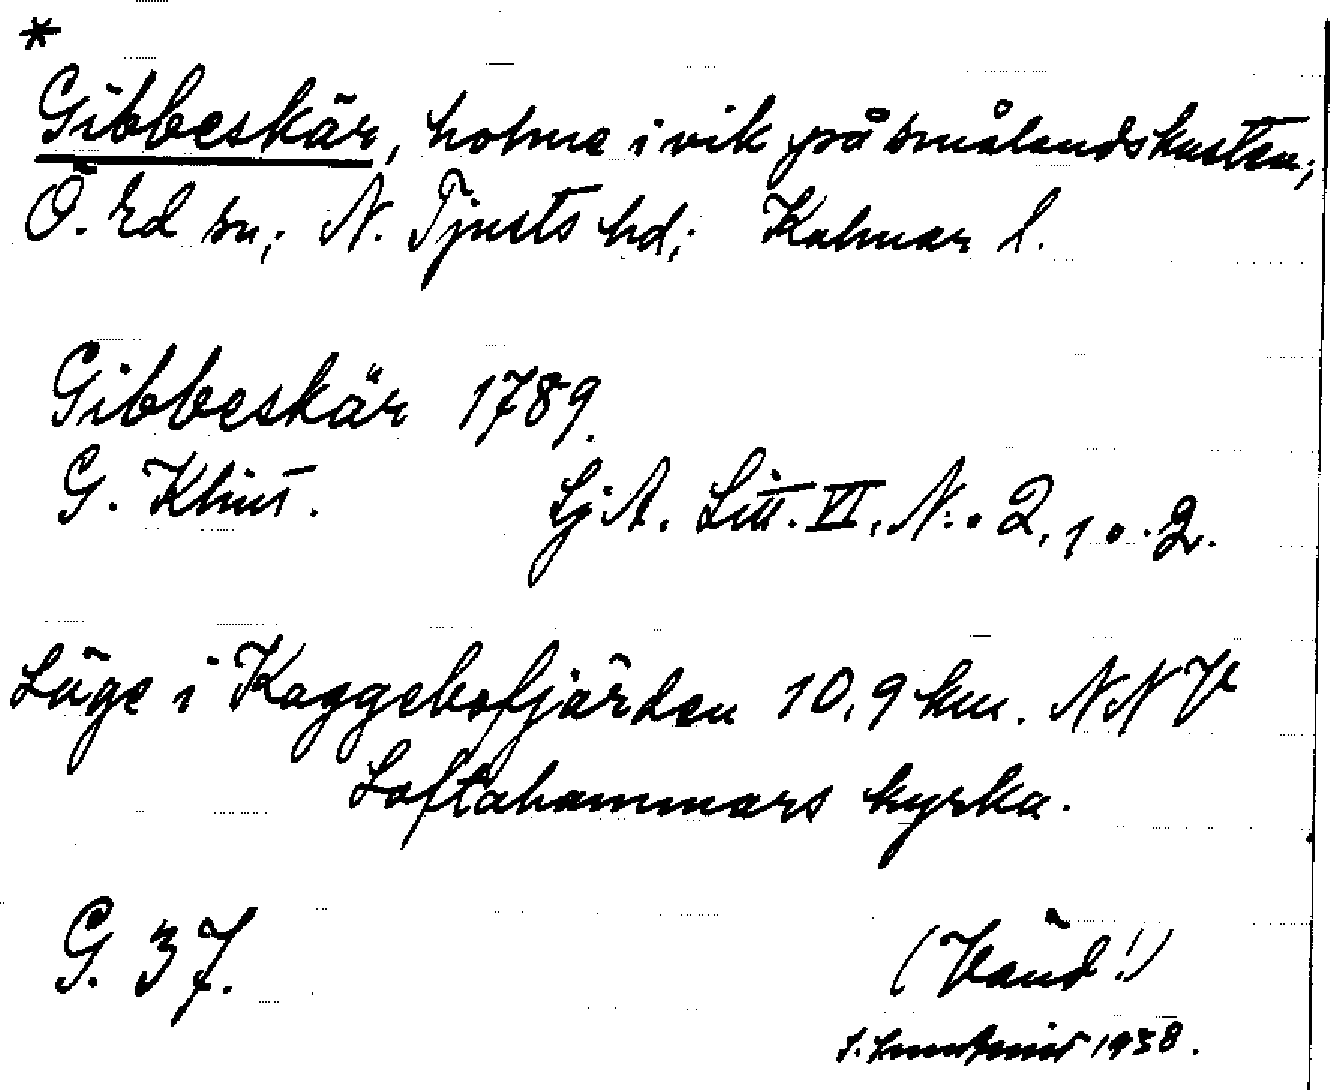 *
Gibbeskär, holme i vik på smålandskusten;
Ö. Ed sn; N. Tjusts hd; Kalmar l.
Gibbeskär 1789.
G. Klint. SjA. Litt. VI, N:o 2, 1 o. 2.
Läge i Kaggebofjärden 10,9 km. NNV
Loftahammars kyrka.
G. 37.
(Vänd!)
1938.